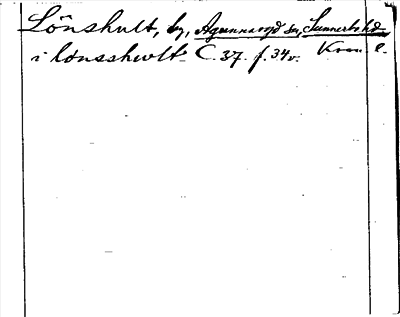 Lönshult, by, Agunnaryd sn, Sunnerbo hd
i lönsshwlt C. 37. f. 34v. Kron. l.